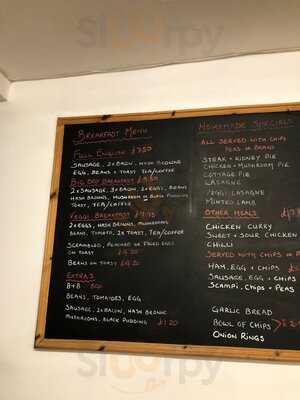 Breakfast Menu
Full English £7.50
Sausage, 2xBacon, Hash Browns
Egg, Beans + Toast Tea/Coffee
Big Boy Breakfast
2xSausage, 3xBacon, 2xEggs, Beans
Hash Browns, Mushroom or Black Pudding
Toast, Tea/Coffee
Veggi Breakfast
2xEggs, Hash Browns, Mushrooms
Beans, Tomato, 2x Toast, Tea/Coffee
Scrambled, Poached or Fried Eggs
on Toast
Beans on Toast
Extras
B+B
Beans, Tomatoes, Egg
Sausage, 2xBacon, Hash Browns
Mushrooms, Black Pudding £1.20
Homemade Specials
All served with Chips
Peas or Beans
Steak + Kidney Pie
Chicken + Mushroom Pie
Cottage Pie
Lasagne
Lasagne
Minted Lamb
Other Meals
Chicken Curry
Sweet + Sour Chicken
Chilli
Served with Chips or
Ham, Egg + Chips
Sausage, Egg + Chips
Scampi, Chips + Peas
Garlic Bread
Bowl of Chips
Onion Rings
sluurpy